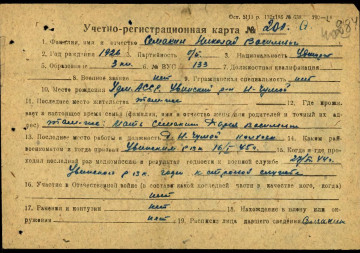 Учетно-регистрационная карта № 201
1. Фамилия, имя и отчество Семакин Николай Васильевич
2. Год рождения 1926 3. Партийность б/п 4. Национальность удмурт
5. Образование 3 кл. 6. № ВУС 133 7. Должностная квалификация
8. Военное звание нет 9. Гражданская специальность нет
10. Место рождения Удм АССР, Увинский р-н
11. Последнее местожительство 12. Где прожи-
вает в настоящее время семья (имя и отчество жены или родителей и точный их ад-
рес) Мать: Семакина Дарья
13. Последнее место работы и должность 14. Каким рай-
военкоматом и когда призван Увинским 15. Когда и где про-
ходил последний раз медкомиссию и результат годности к военной службе
Увинском годен к строевой службе
16. Участие в Отечественной войне (в составе какой войсковой части в качестве кого, когда)
нет
17. Ранения и контузии нет 18. Нахождение в плену или ок-
ружении нет 19. Росписка лица давшего сведения Семакин